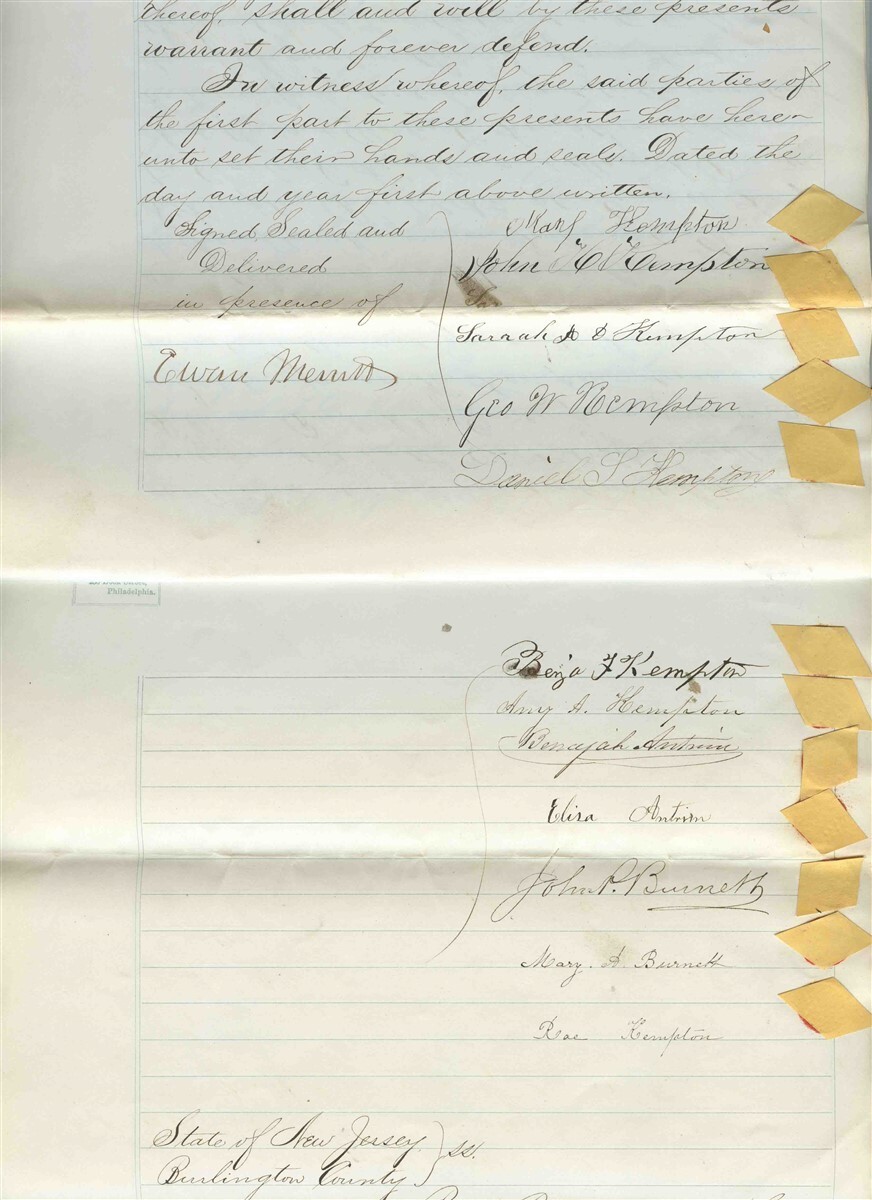 thereof, shall and will by these presents
warrant and forever defend.
In witness whereof, the said parties of
the first part to these presents have here-
unto set their hands and seals. Dated the
day and year first above written.
Signed, Sealed and
Delivered
in presence of
Ewan Merritt
Mary Kempton
John Kempton
Saraah A D Kempton
Geo W Kempton
Daniel S Kempton
Philadelphia.
Benja F Kempton
Amy A. Kempton
Benajah Antrim
Eliza Antrim
John P. Burnett
Mary. A. Burnett
Rae Kempton
State of New Jersey
Burlington County
ss.